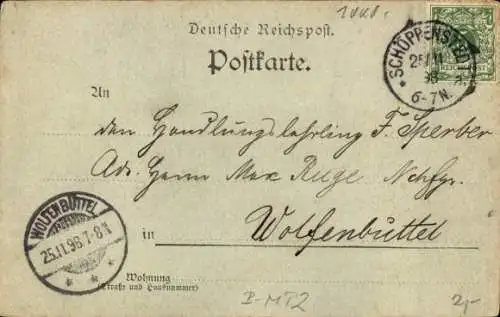 1000.
Deutsche Reichspost.
Postkarte.
SCHÖPPENSTEDT
25/11
98
6-7N.
An
den Handlungslehrling F. Sperber
Adr. Herrn Max Ruge Nchfgr.
in Wolfenbüttel
WOLFENBÜTTEL
25.11.98.7-8N
Wohnung
(Straße und Hausnummer)
I-MT2
2,-